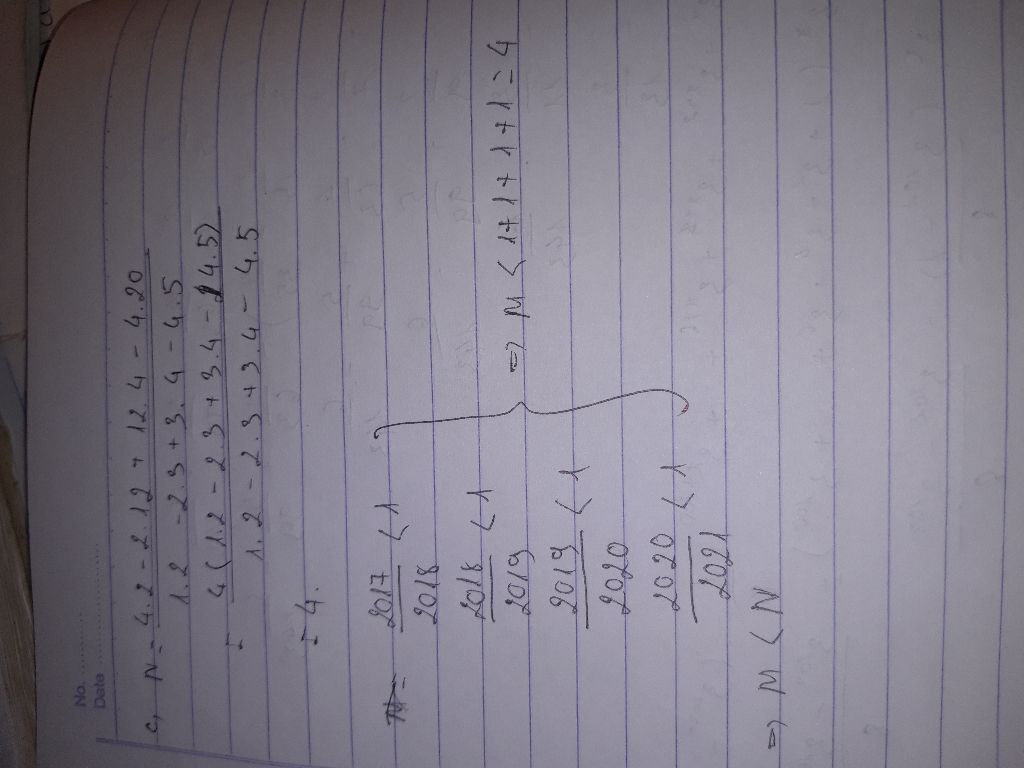 No. ............
Date ....................
c, N = 4.2 - 2.12 + 12.4 - 4.20
1.2 - 2.3 + 3.4 - 4.5
= 4(1.2 - 2.3 + 3.4 - 4.5)
1.2 - 2.3 + 3.4 - 4.5
= 4.
2017 < 1
2018
2018 < 1
2019
=> M < 1+1+1+1=4
2019 < 1
2020
2020 < 1
2021
=> M < N